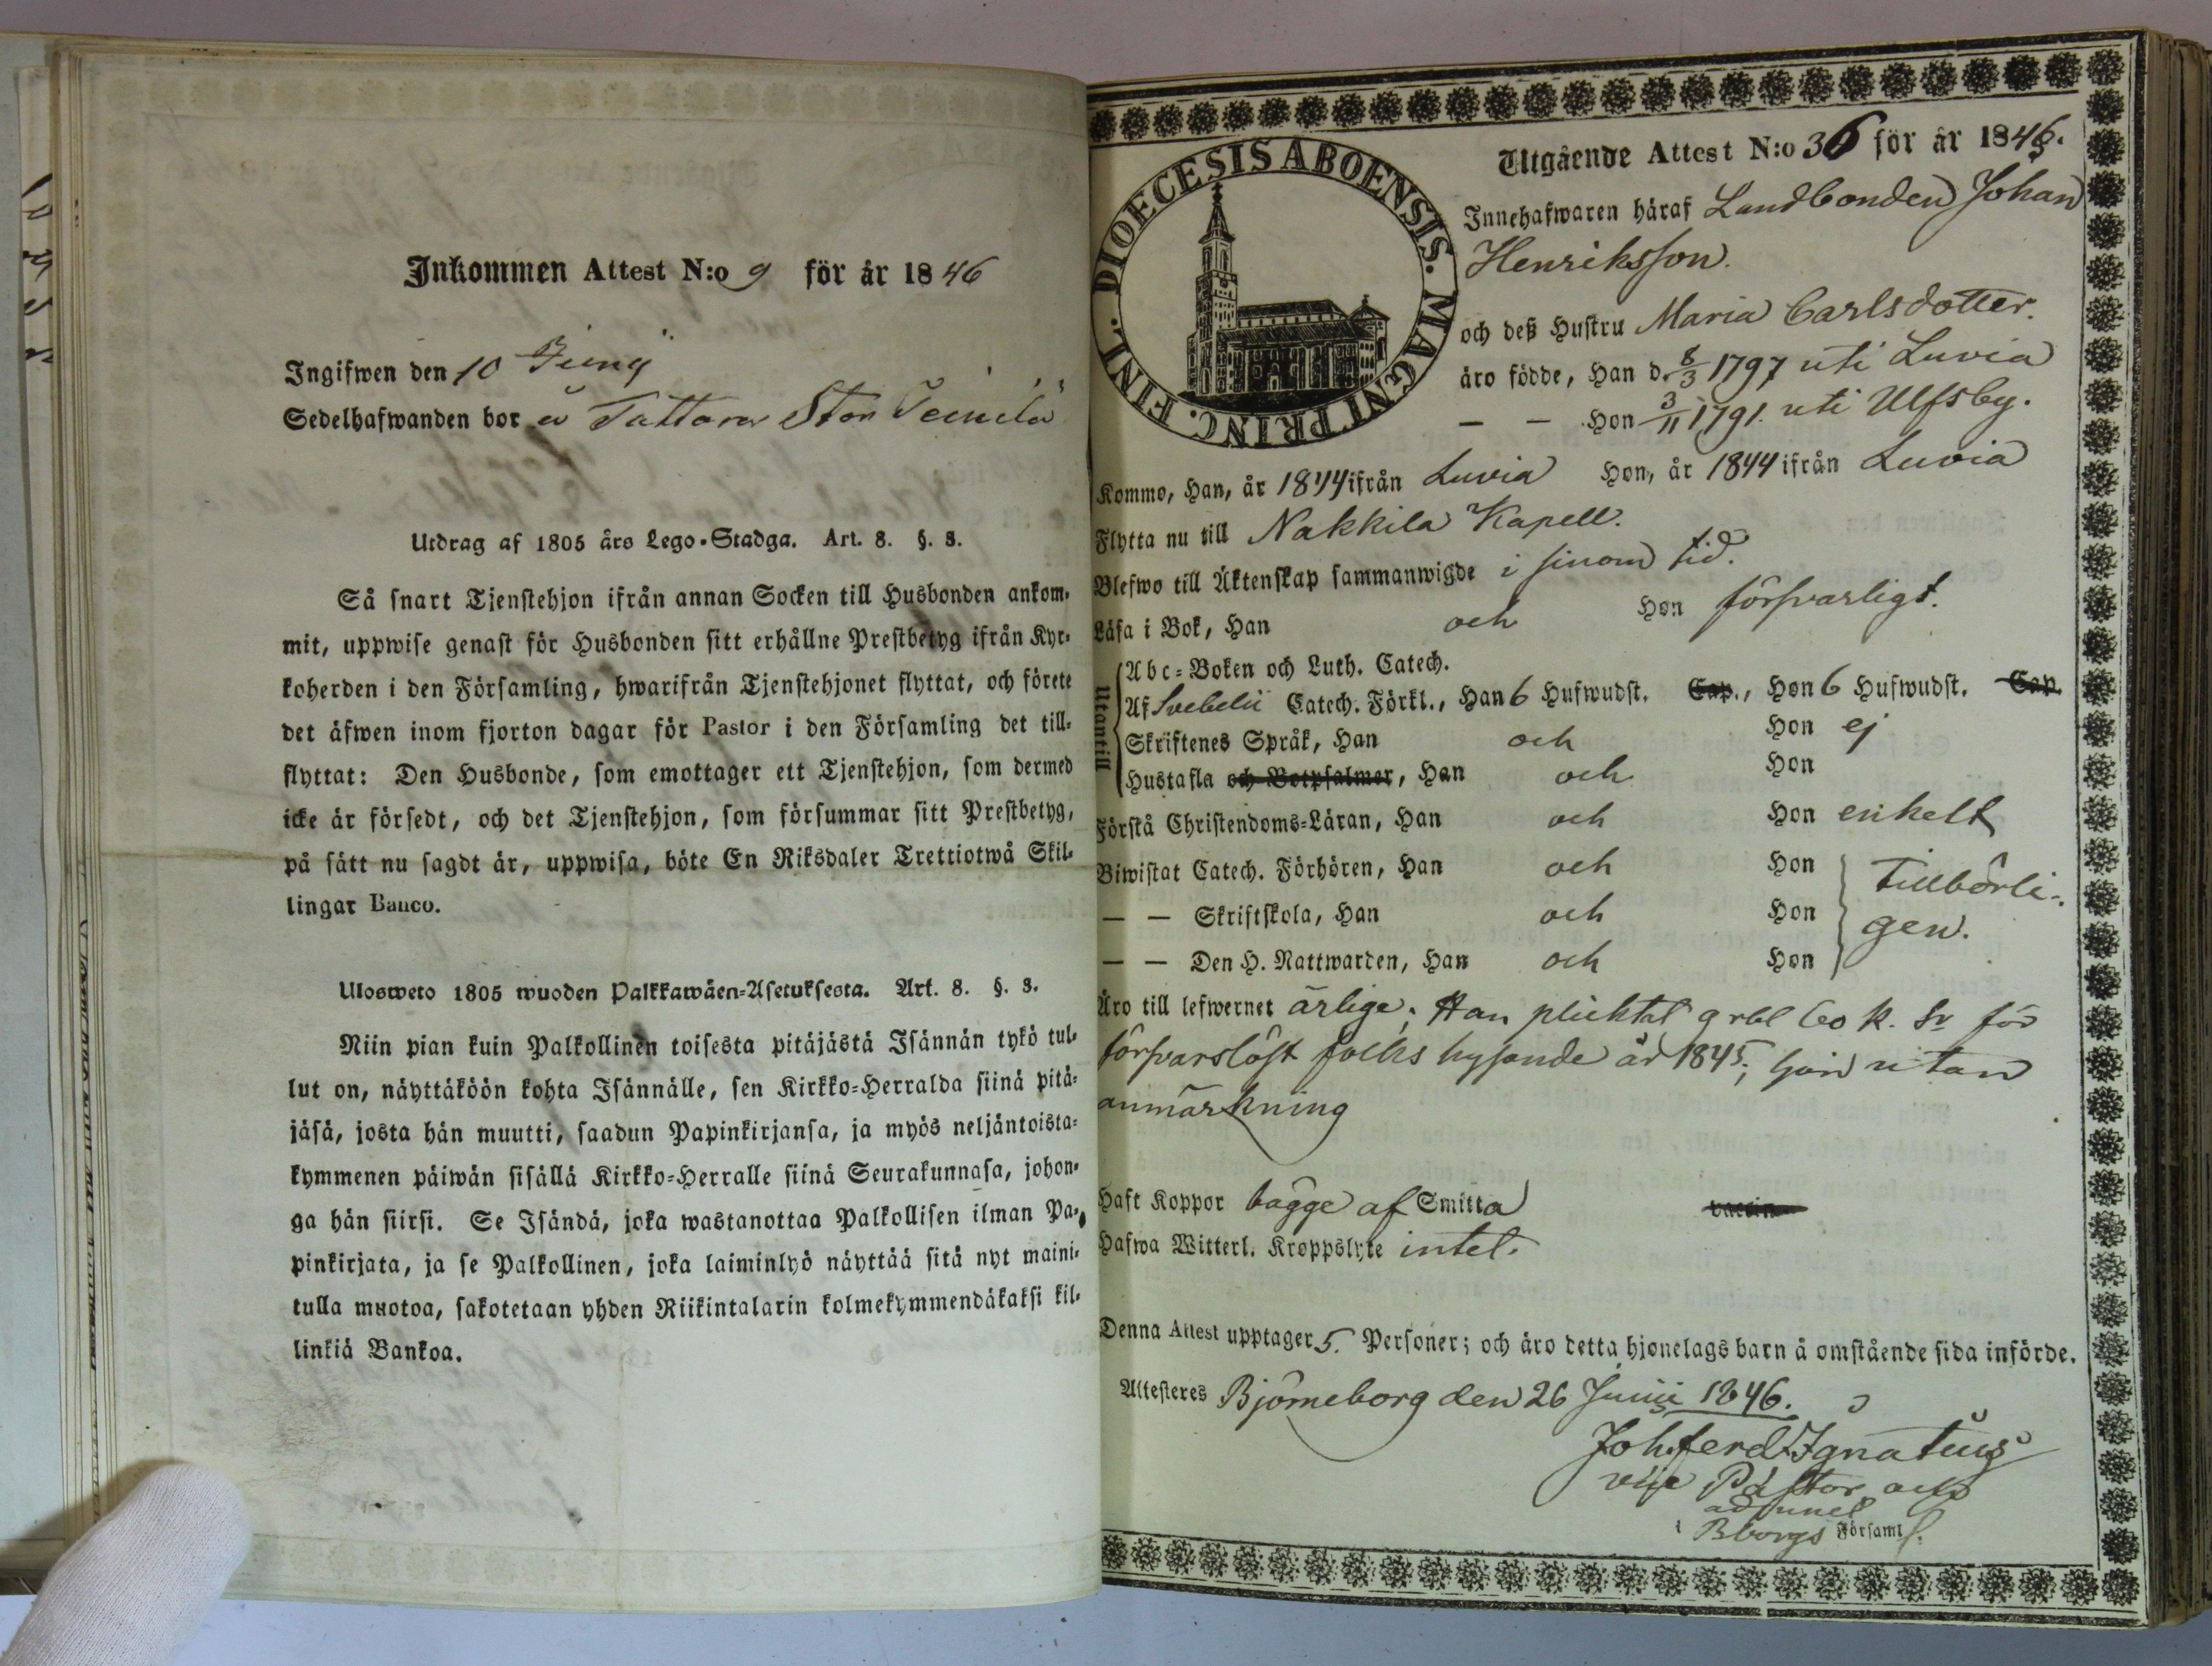 Inkommen Attest N:o 9 för år 1846
Ingifwen den 10 Junij
Sedelhafwanden bor å Tattara Stor
Utdrag af 1805 års Lego-Stadga. Art. 8. §. 3.
Så snart Tjenstehjon ifrån annan Socken till Husbonden ankom-
mit, uppwise genast för Husbonden sitt erhållne Prestbetyg ifrån Kyr-
koherden i den Församling, hwarifrån Tjenstehjonet flyttat, och förete
det äfwen inom fjorton dagar för Pastor i den Församling det till-
flyttat: Den Husbonde, som emottager ett Tjenstehjon, som dermed
icke är försedt, och det Tjenstehjon, som försummar sitt Prestbetyg,
på sätt nu sagdt är, uppwisa, böte En Riksdaler Trettiotwå Skil-
lingar Banco.
Ulosweto 1805 wuoden Palkkawäen-Asetuksesta. Art. 8. §. 3.
Niin pian kuin Palkollinen toisesta pitäjästä Isännän tykö tul-
lut on, näyttäköön kohta Isännälle, sen Kirkko-Herralda siinä pitä-
jäsä, josta hän muutti, saadun Papinkirjansa, ja myös neljäntoista-
kymmenen päiwän sisällä Kirkko-Herralle siinä Seurakunnasa, johon-
ga hän siirsi. Se Isändä, joka wastanottaa Palkollisen ilman Pa-
pinkirjata, ja se Palkollinen, joka laiminlyö näyttää sitä nyt maini-
tulla muotoa, sakotetaan yhden Riikintalarin kolmekymmendäkaksi kil-
linkiä Bankoa.
DIOECESIS ABOENSIS. MAGNI PRINC. FINL.
Utgående Attest N:o 36 för år 1846.
Innehafwaren häraf Landbonden Johan
Henriksson.
och deß Hustru Maria Carlsdotter.
äro födde, Han d. 8/3 1797 uti Luvia
— — Hon 3/11 1791. uti Ulfsby.
Kommo, Han, år 1844 ifrån Luvia Hon, år 1844 ifrån Luvia
Flytta nu till Nakkila Kapell.
Blefwo till Äktenskap sammanwigde i sinom tid.
Läsa i Bok, Han och Hon försvarligt.
Utantill
Abc-Boken och Luth. Catech.
Af Svebelii Catech. Förkl., Han 6 Hufwudst. Cap., Hon 6 Hufwudst. Cap.
Skriftenes Språk, Han och Hon ej
Hustafla och Botpsalmer, Han och Hon
Förstå Christendoms-Läran, Han och Hon enkelt
Biwistat Catech. Förhören, Han och Hon tillbörli-
— — Skriftskola, Han och Hon gen.
— — Den H. Nattwarden, Han och Hon
Äro till lefwernet ärlige; Han pliktat 9 rbl 60 k. Sr för
försvarslöst folks hysande år 1845; hon utan
anmärkning
Haft Koppor bägge af Smitta vaccin
Hafwa Witterl. Kroppslyte intet.
Denna Attest upptager 5. Personer; och äro detta hjonelags barn å omstående sida införde.
Attesteres Björneborg den 26 Junii 1846.
Joh. Ferd. Ignatius
vice Pastor och
adjunct
i Bborgs Församl.